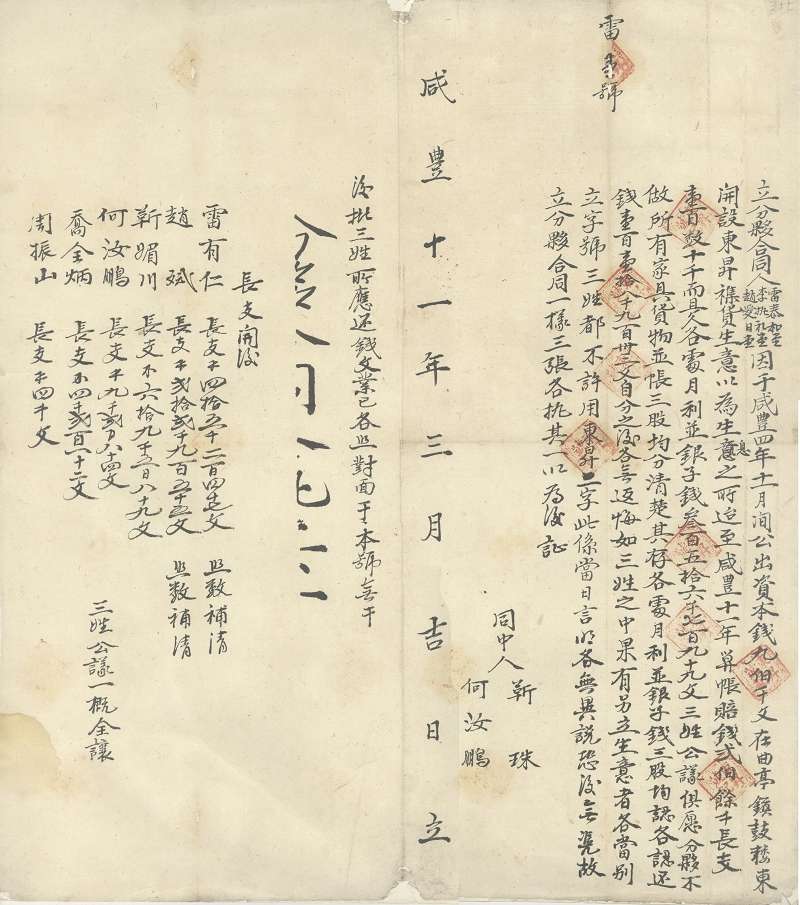 雷 號
立分夥合同人雷泰和堂李執禮堂趙受日堂因于咸豐四年十一月間公出資本錢九佰千文在曲亭鎮鼓樓東
開設東昇襍貨生意以為生息之所迨至咸豐十一年算帳賠錢貳佰餘千長支
壹百数十千而具欠各處月利並銀子錢叁百五拾六千七百九十九文三姓公議俱愿分夥不
做所有家具貨物並帳三股均分清楚其存各處月利並銀子錢三股均認各認还
錢壹百壹拾八千九百卅三文自分之後各無返悔如三姓之中果有另立生意者各當別
立字號三姓都不許用東昇二字此係當日言明各無異說恐後無憑故
立分夥合同一樣三張各執其一以為後証
同中人 靳珠
何汝鵬
咸豐十一年三月吉日立
後批三姓所應还錢文業已各照對面于本號無干
長支開後
雷有仁 長支 四拾五千二百四 文 照数補清
趙斌 長支 貳拾貳千九百五十五文 照数補清
靳媚川 長支 六拾九千三百八十九文
何汝鵬 長支 九千 八十四文
喬全炳 長支 四千 百一十二文
周振山 長支 四千文
三姓公議一概全讓